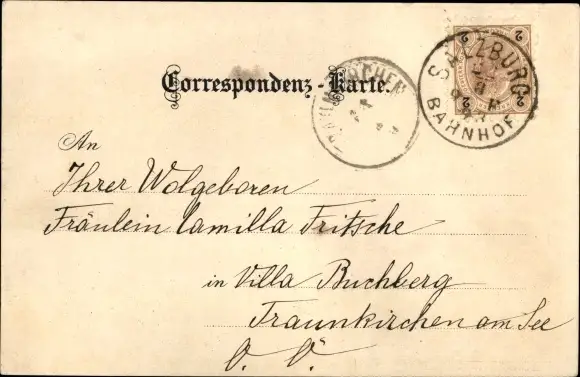 2 2
SALZBURG
BAHNHOF
2 2
Correspondenz-Karte.
An
Ihrer Wolgeboren
Fräulein Camilla Fritsche
in Villa Buchberg
Traunkirchen am See
O. Ö.